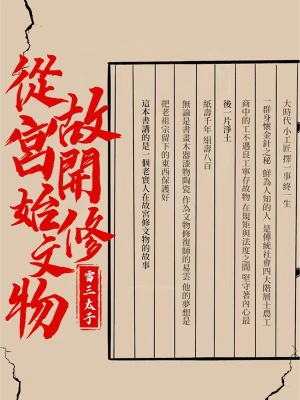 從故宮開始修文物
雷三太子
大時代 小工匠 擇一事終一生
一群身懷金針之秘 鮮為人知的人 是傳統社會四大階層士農工
商中的工 不遇良工寧存故物 在規矩與法度之間 堅守著內心最
後一片淨土
紙壽千年 絹壽八百
無論是書畫木器漆物陶瓷 作為文物修復師的易雲 他的夢想是
把老祖宗留下的東西保護好
這本書講的是一個老實人在故宮修文物的故事